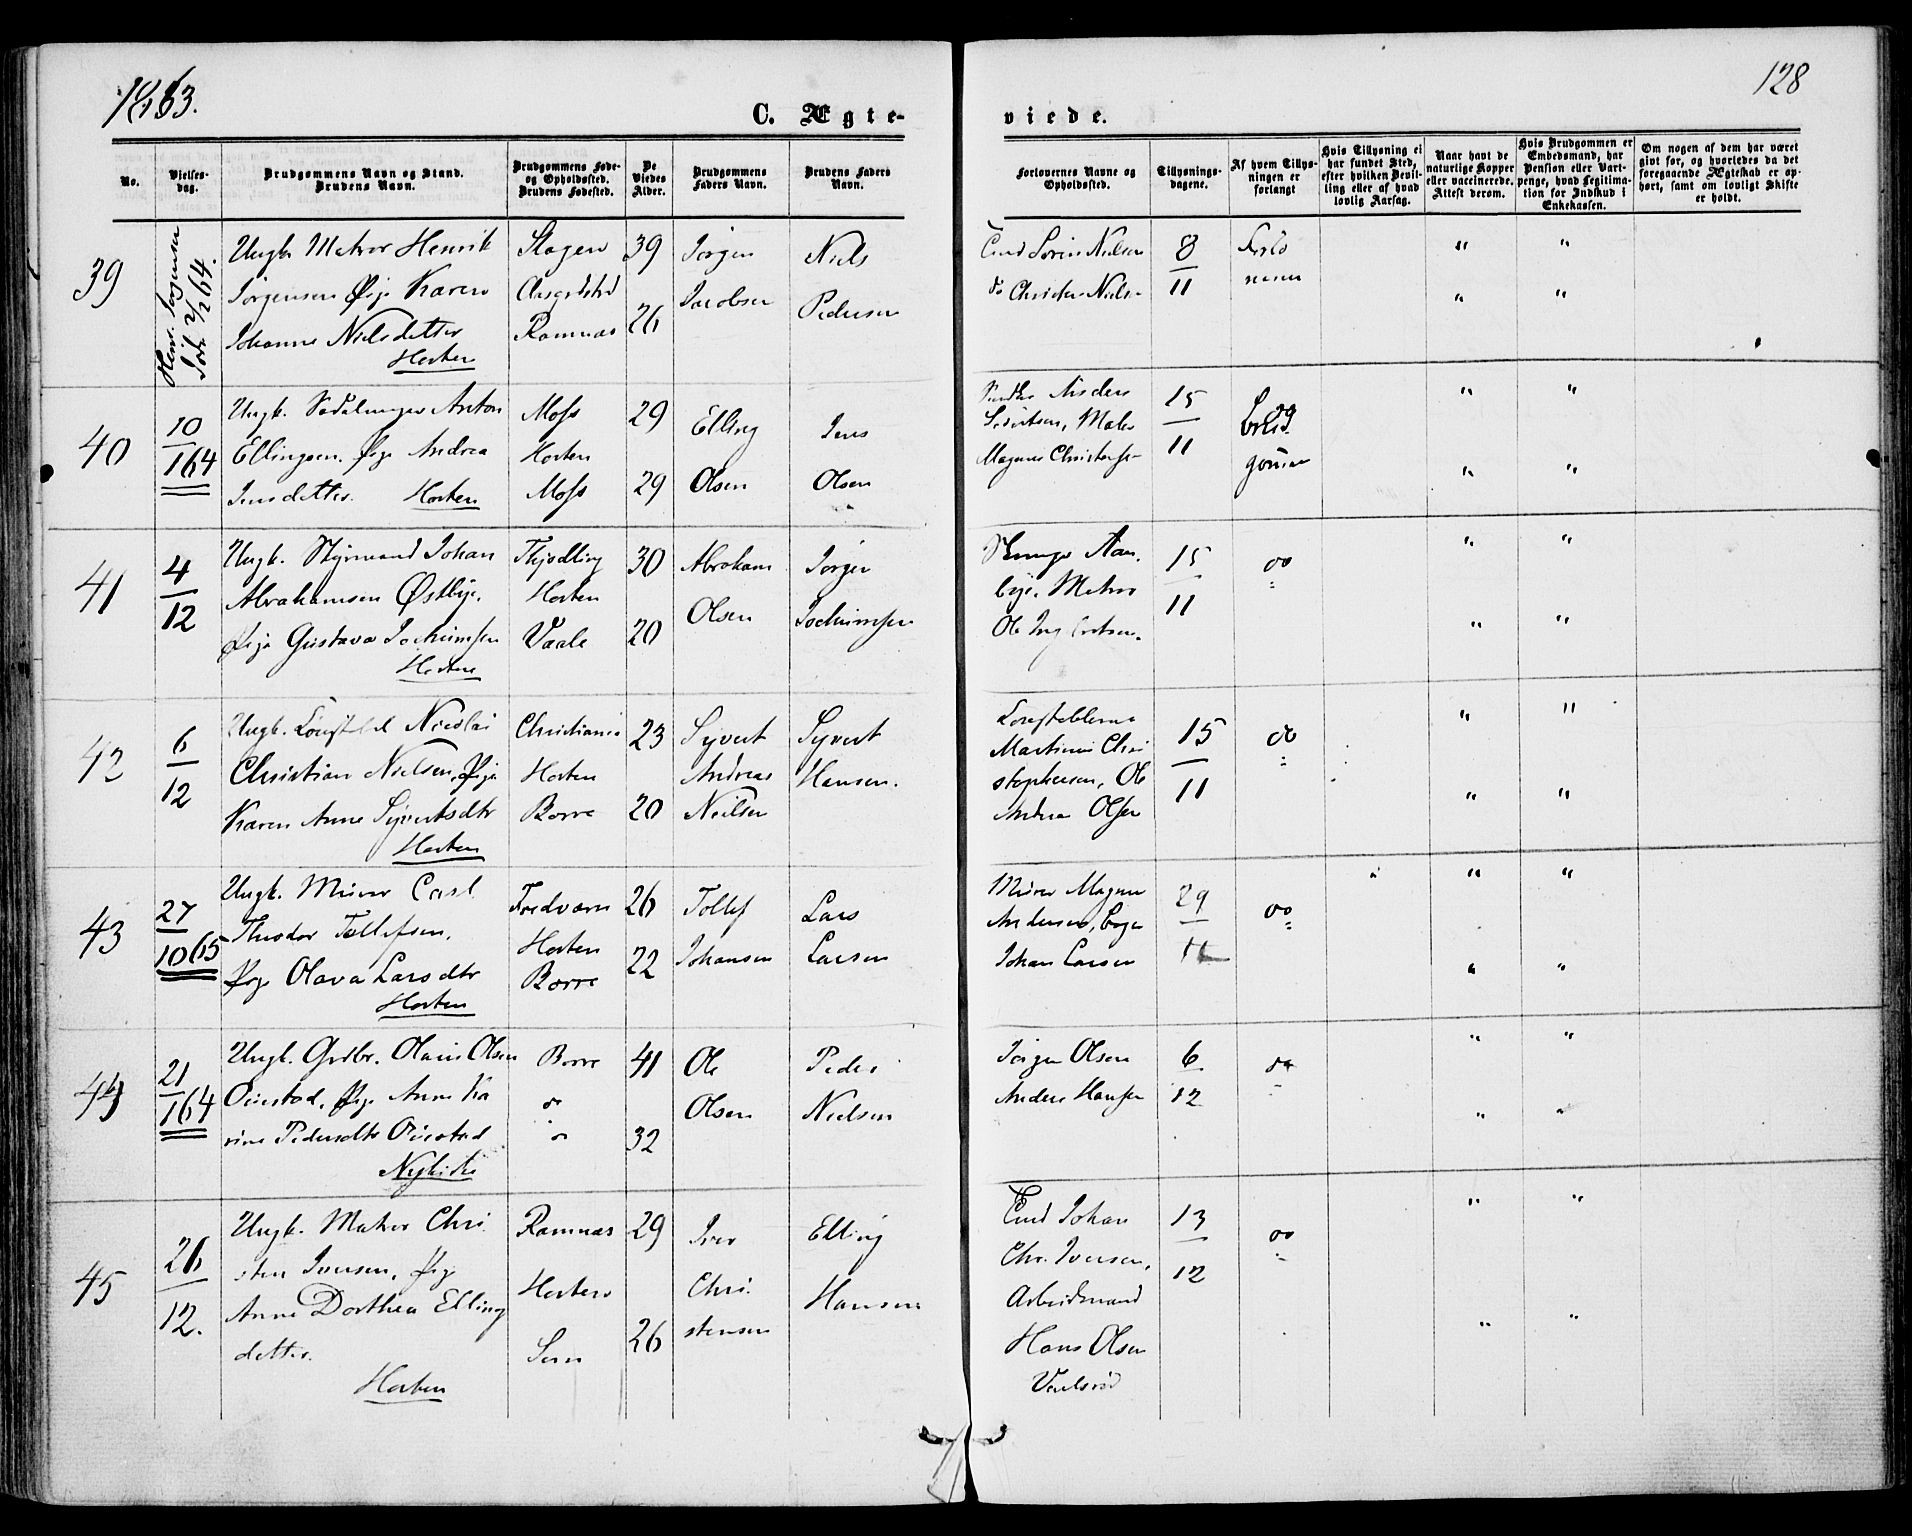 1863.
128
C. Ægte-
viede.
No.
Vielses-
dag.
Brudgommens Navn og Stand.
Brudens Navn.
Brudgommens Føde-
og Opholdssted.
Brudens Fødested.
De
Viedes
Alder.
Brudgommens
Faders Navn.
Brudens Faders
Navn.
Forlovernes Navne og
Opholdssted.
Tillysnings-
dagene.
Af hvem Tillys-
ningen er
forlangt
Hvis Tillysning ei
har fundet Sted,
efter hvilken Bevil-
ling eller af hvad
lovlig Aarsag.
Naar havt de
naturlige Kopper
eller vaccinerede.
Attest derom.
Hvis Brudgommen er
Embedsmand, har
Pension eller Vart-
penge, hvad Legitima-
tion for Indskud i
Enkekassen.
Om nogen af dem har været
givt før, og hvorledes da det
foregaaende Ægteskab er op-
hørt, samt om lovligt Skifte
er holdt.
39
2/2 64.
Ungk. Matros Henrik
Jørgensen Pige Karen
Johanne Nielsdatter
Horten
Ramnæs
39
26
Jørgen
Jacobsen
Niels
Pedersen
Sørin Nielsen
do Christen Nielsen
8
11
" "
" "
40
10
1 64
Ungk. Anton
Ellingsen. Pige Andrea
Jensdatter. Horten
Moss
Horten
Moss
29
29
Elling
Olsen
Jens
Olsen
Magnus
15
11
" "
" "
41
4
12
Ungk. Styrmand Johan
Abrahamsen Østbye.
Pige Gustava Jochumsen
Horten
Horten
Vaale
30
20
Abraham
Olsen
Jørgen
Jochumsen
Matros
Ole
15
11
do
" "
" "
42
6
12
Ungk. Nicolai
Christian Nielsen, Pige
Karen Anne Syvertsdtr
Horten
Christiania
Horten
Borre
23
20
Syvert
Andreas
Neilsen
Syvert
Hansen.
Martinus Chri
stophersen, Ole
Andrea Olsen
15
11
do
" "
" "
43
27
10 65
Ungk. Murer Carl
Theodor Tollefsen.
Pige Olava Larsdtr
Horten
Fredværn
Horten
Borre
26
22
Tollef
Johansen
Lars
Larsen
Murer Magnus
Andersen,
Johan Larsen
29
11
do
" " "
" "
44
21
1 64
Ungk. Grdbr. Olaus Olsen
Pige Anne Ka
rine Pedersdtr
Nykirke
Borre
do
do
41
32
Ole
Olsen
Peder
Nielsen
Jørgen Olsen
Anders Hansen
6
12
do
" "
" "
45
26
12.
Ungk. Matros Chri
sten Iversen, Pige
Anne Dorthea Elling
datter.
Horten
Ramnæs
Horten
Sem
29
26
Iver
Chri
stensen
Elling
Hansen
Johan
Chr. Iversen,
Arbeidsmand
Hans Olsen
13
12
do
" "
" "